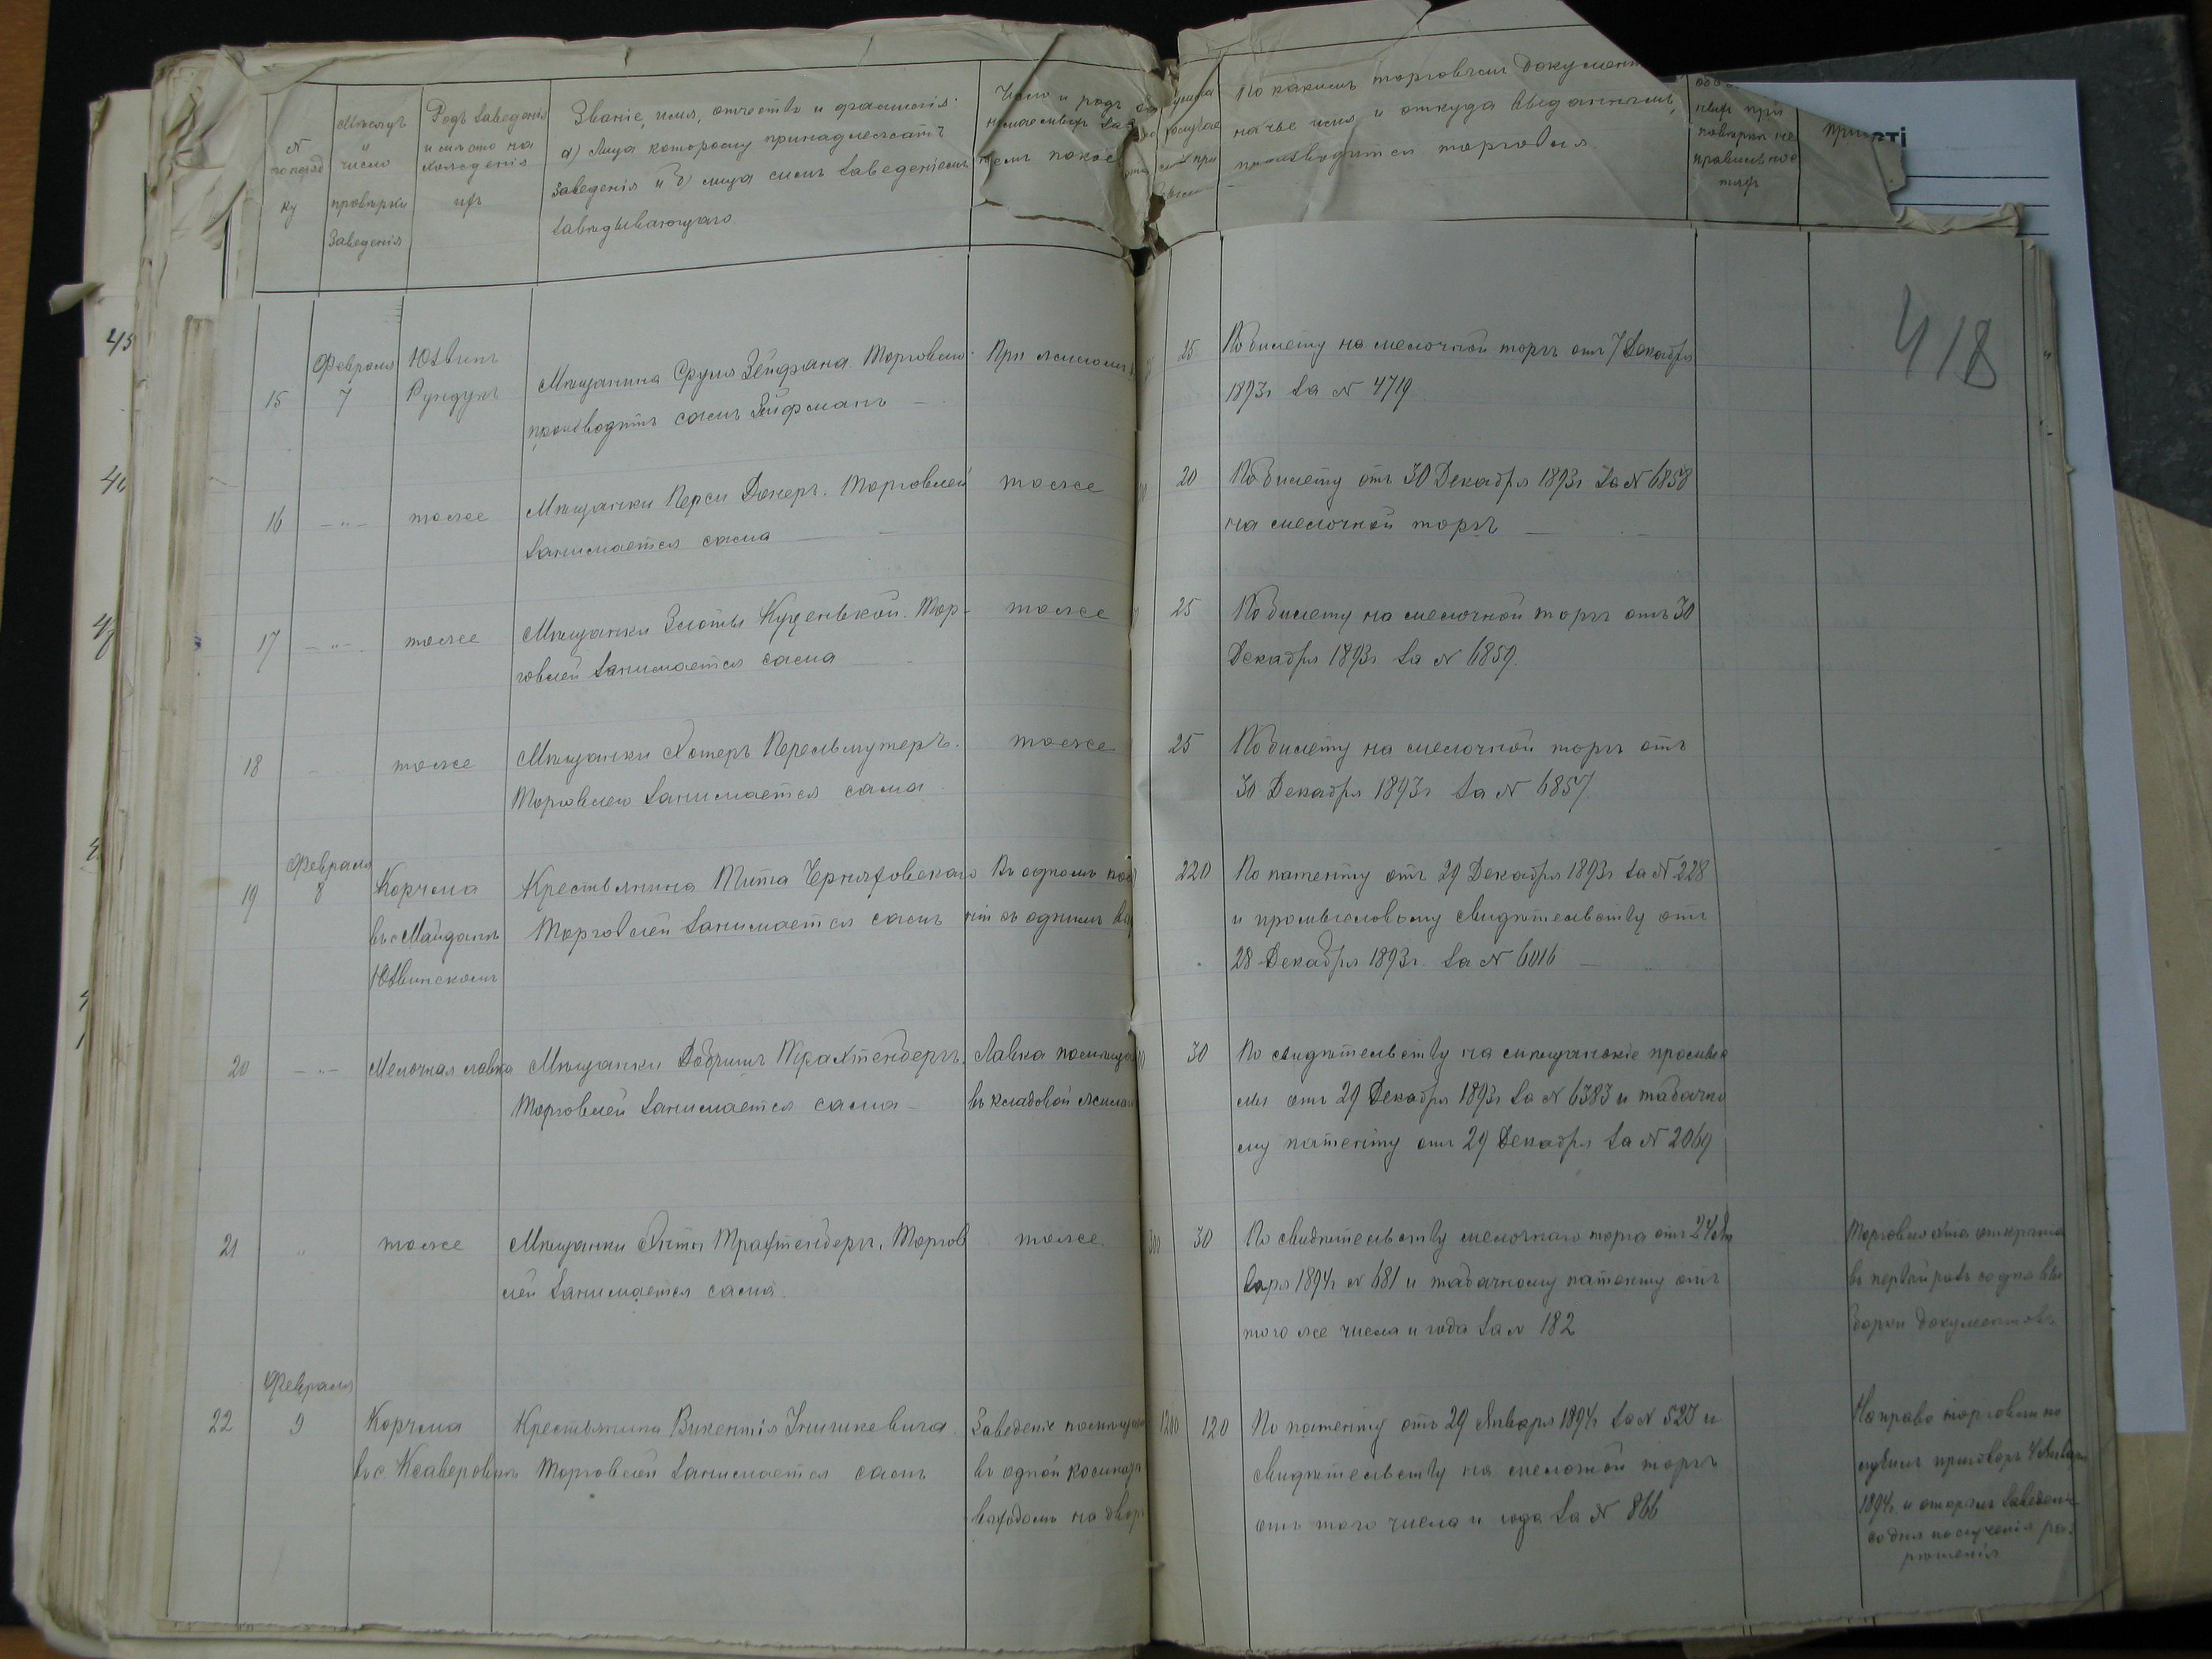 №
по поряд
ку
Месяцъ
и
число
проверки
Заведенія
Родъ заведенія
и место на
хожденія
ихъ
Званіе, имя, отчество и фамилія.
а) лица которому принадлежатъ
заведенія и б) лица симъ заведеніемъ
заведывающаго
Число и родъ
По какимъ торговымъ документ
на чье имя и откуда выданнымъ,
производится торговля
нихъ при
поверки не
правильно
418
15
Февраля
7
Юзвинъ
Рундукъ
Мещанина Сруля Зейфмана Торговлю
производитъ самъ Зейфманъ —
При жиломъ
25
По билету на мелочной торгъ отъ 7 Декабря
1893г За № 4719
16
— " —
тоже
Мещанки Перси Донеръ. Торговлей
занимается сама
тоже
20
По билету отъ 30 Декабря 1893г За № 6858
на мелочной торгъ —
17
— " —
тоже
Мещанки Златы Куценькой. Тор-
говлей занимается сама
тоже
25
По билету на мелочной торгъ отъ 30
Декабря 1893г За № 6859.
18
тоже
Мещанки Эстеръ Перельмутеръ.
Торговлею занимается сама
тоже
25
По билету на мелочной торгъ отъ
30 Декабря 1893г За № 6857.
19
Февраля
8
Корчма
въ с Майдане
Юзвинскомъ
Крестьянина Тита Черняховскаго
Торговлей занимается самъ
Въ одномъ
съ однимъ
220
По патенту отъ 29 Декабря 1893г За № 228
и промысловому свидетельству отъ
28 Декабря 1893г. За № 6016 —
20
— " —
Мелочная лавка
Мещанки Добришъ Трахтенбергъ.
Торговлей занимается сама —
Лавка помеща
въ кладовой жило
30
По свидетельству на мещанскіе промыс
лы отъ 29 Декабря 1893г За № 6383 и табачно
му патенту отъ 29 Декабря За № 2069
21
"
тоже
Мещанки Энты Трахтенбергъ. Торгов
лей занимается сама.
тоже
300
30
По свидетельству мелочнаго торга отъ 24 Ян
варя 1894г № 681 и табачному патенту отъ
того же числа и года За № 182
Торговля эта открыта
въ первый разъ со дня вы
борки документовъ
22
Февраля
9
Корчма
въ с. Ксаверовке
Крестьянина Викентія
Торговлей занимается самъ
Заведеніе помеща
въ одной комнате
выходомъ на дворъ
1200
120
По патенту отъ 29 Января 1894г За № 523 и
свидетельству на мелочной торгъ
отъ того числа и года За № 866
На право торговли по
лученъ приговоръ 4 Января
1894г и открылъ заведеніе
со дня полученія раз
решенія